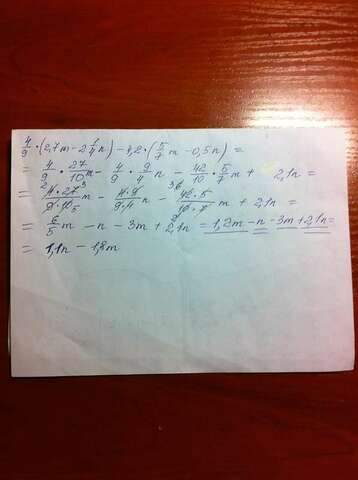 4/9 · (2,7m - 2 1/4 n) - 4,2 · (5/7 m - 0,5n) =
= 4/9 · 27/10 m - 4/9 · 9/4 n - 42/10 · 5/7 m + 2,1n =
= 4·27/9·10 m - 4·9/9·4 n - 42·5/10·7 m + 2,1n =
= 6/5 m - n - 3m + 2,1n = 1,2m - n - 3m + 2,1n =
= 1,1n - 1,8m